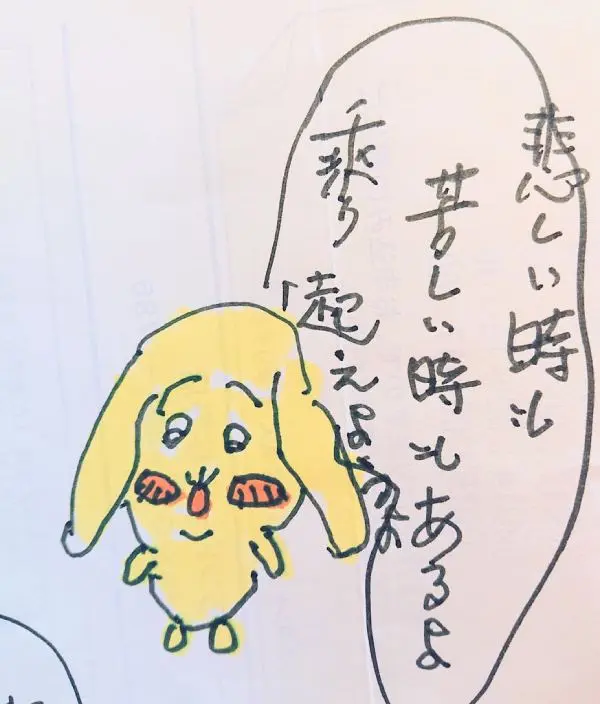 悲しい時も
苦しい時もあるよ
乗り起えようよ